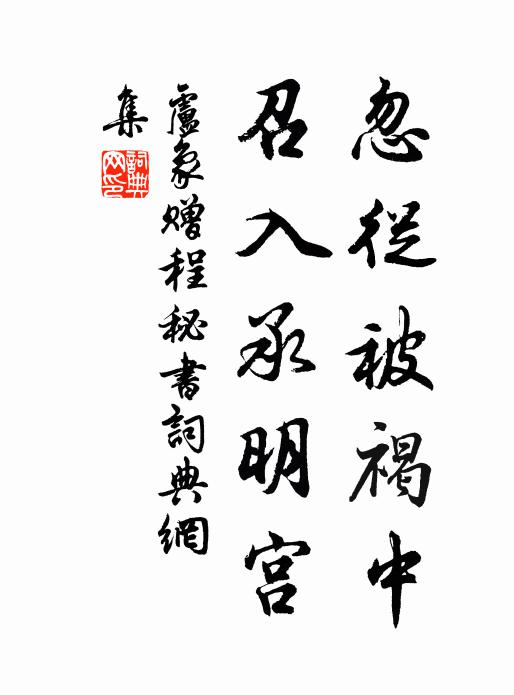 忽從被褐中
召入承明宮
盧象贈程秘書詞典網
集
詞典网印